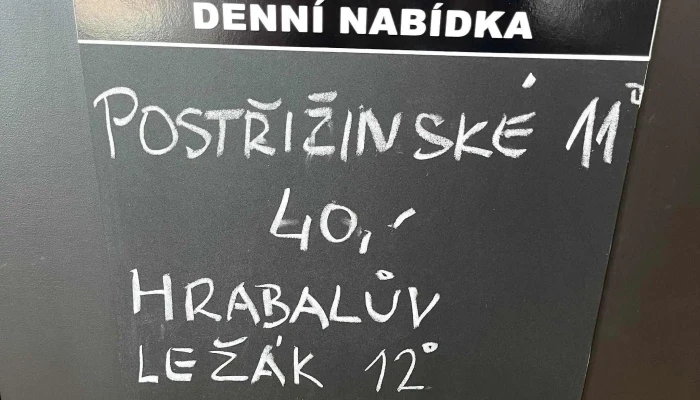 DENNÍ NABÍDKA
POSTŘIŽINSKÉ 11°
40,-
HRABALŮV
LEŽÁK 12°